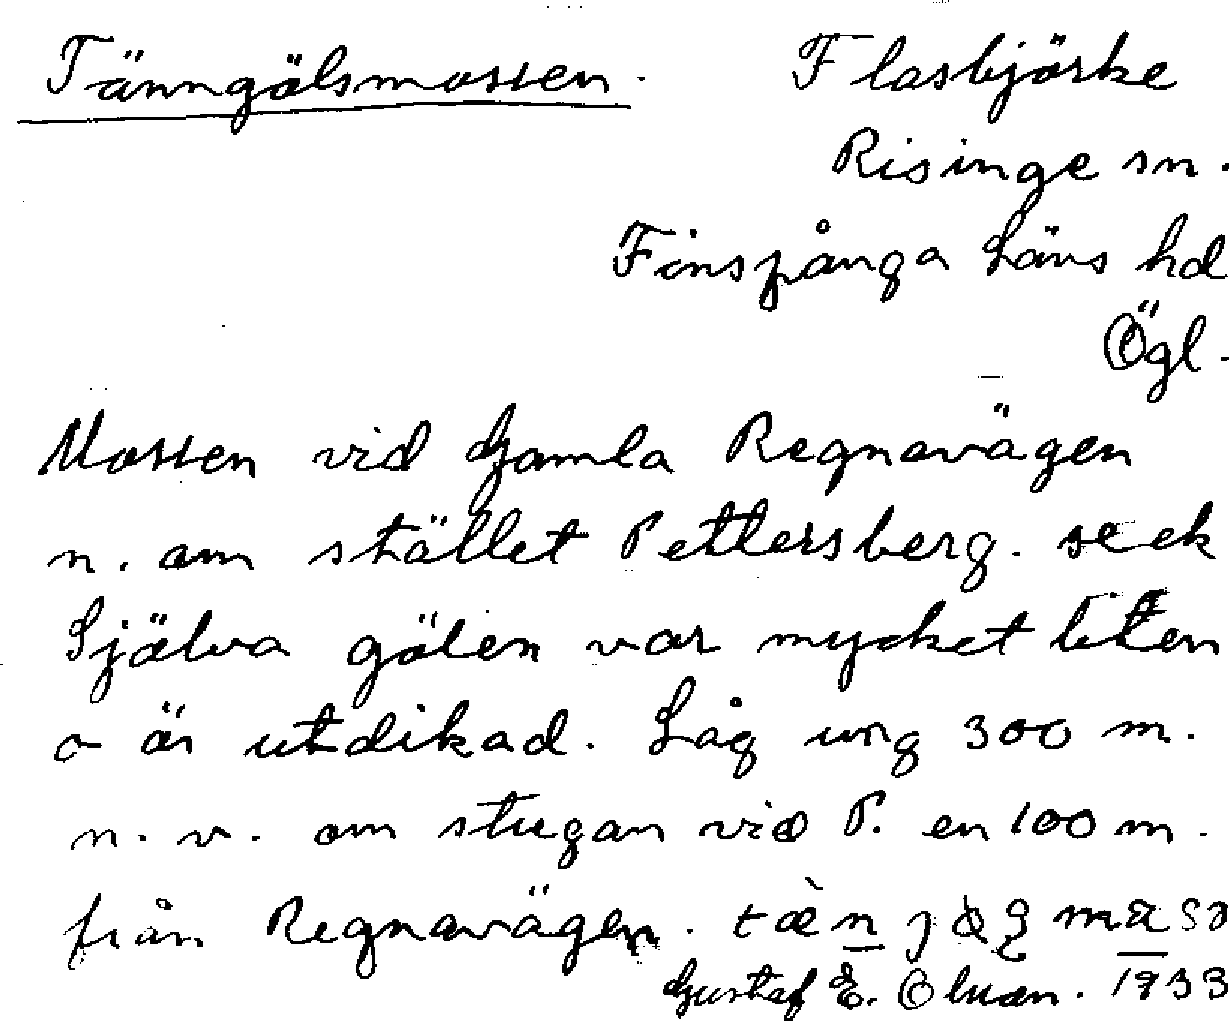 Tänngölsmossen. Flasbjörke
Risinge sn.
Finspånga Läns hd
Ögl.
Mossen vid Gamla Regnavägen
n. om stället Pettersberg. se ek
Själva gölen var mycket liten
o är utdikad. Låg ung 300 m.
n. v. om stugan vid P. en 100 m.
från Regnavägen.
Gustaf E. Olsson. 1933